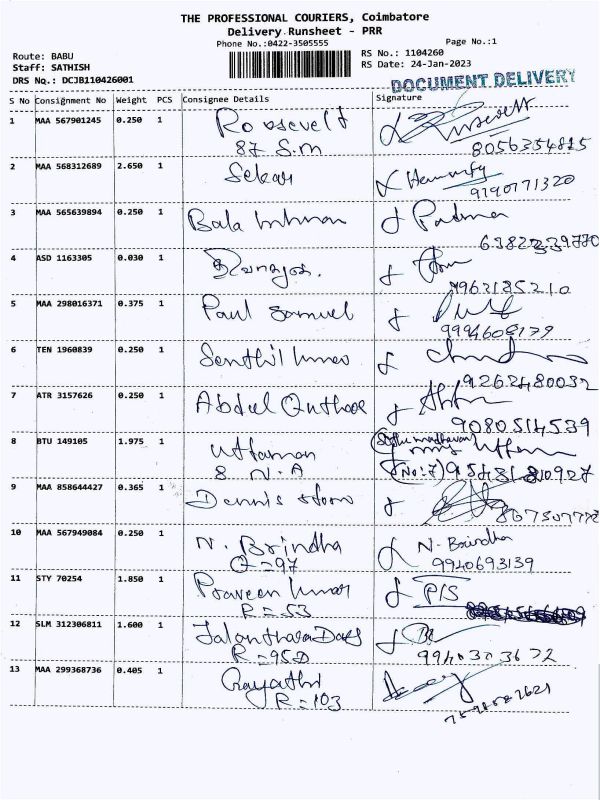 THE PROFESSIONAL COURIERS, Coimbatore
Delivery Runsheet - PRR
Phone No.:0422-3505555
Page No.:1
Route: BABU
RS No.: 1104260
Staff: SATHISH
RS Date: 24-Jan-2023
DRS No.: DCJB110426001
DOCUMENT DELIVERY
S No Consignment No Weight PCS Consignee Details Signature
1 MAA 567901245 0.250 1 Roosevelt
87 S.M
2 MAA 568312689 2.650 1 Sekar
9190771320
3 MAA 565639894 0.250 1 Bala Padma
4 ASD 1163305 0.030 1
7963185210
5 MAA 298016371 0.375 1 Paul Samuel
9994608179
6 TEN 1960839 0.250 1 Senthil
9262480032
7 ATR 3157626 0.250 1 Abdul
9080514539
8 BTU 149105 1.975 1 Uttaman
8 N.A (No:7)
9 MAA 858644427 0.365 1 Dennis
10 MAA 567949084 0.250 1 N. Brindha N. Brindha
Q=97 9940693139
11 STY 70254 1.850 1 Praveen Kumar P/S
R=53
12 SLM 312306811 1.600 1
R=95D 9940303672
13 MAA 299368736 0.405 1 Gayathri
R=103